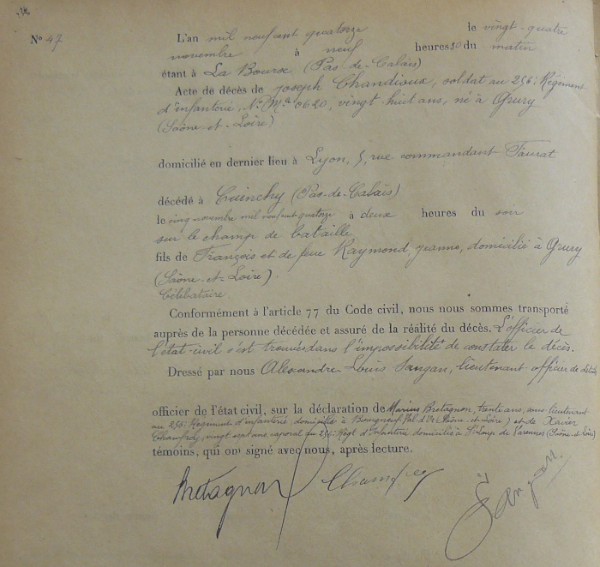 No 47
L'an mil neuf cent quatorze le vingt-quatre
novembre à neuf heures 30 du matin
étant à La Bourse (Pas-de-Calais)
Acte de décès de Joseph Chandioux, soldat au 256e Régiment
d'infanterie, No Mle 0620, vingt huit ans, né à Grury
(Saône-et-Loire)
domicilié en dernier lieu à Lyon, 5, rue commandant Faurat
décédé à Cuinchy (Pas-de-Calais)
le cinq novembre mil neuf cent quatorze à deux heures du soir
sur le champ de bataille
fils de François et de feue Raymond Jeanne, domicilié à Grury
(Saône-et-Loire).
Célibataire
Conformément à l'article 77 du Code civil, nous nous sommes transporté
auprès de la personne décédée et assuré de la réalité du décès. L'officier de
l'état-civil s'est trouvé dans l'impossibilité de constater le décès.
Dressé par nous Alexandre Louis Sangan, lieutenant officier de détails
officier de l'état civil, sur la déclaration de Marius Bretagnon, trente ans, sous lieutenant
au 256e Régiment d'infanterie domicilié à Bourgneuf (Saône-et-Loire) et de Xavier
vingt sept ans caporal au 256e Régt d'Infanterie domicilié à St Loup de Varennes (Saône-et-Loire)
témoins, qui ont signé avec nous, après lecture.
Bretagnon Sangan